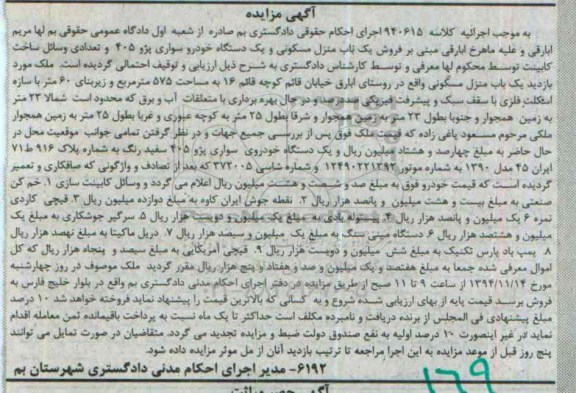 آگهی مزایده
به موجب اجرائیه کلاسه ۹۴۰۶۱۵ اجرای احکام حقوقی دادگستری بم صادره از شعبه اول دادگاه عمومی حقوقی بم لها مریم
ابارقی و علیه ماهرخ ابارقی مبنی بر فروش یک باب منزل مسکونی و یک دستگاه خودرو سواری پژو ۴۰۵ و تعدادی وسائل ساخت
کابینت توسط محکوم لها معرفی و توسط کارشناس دادگستری به شرح ذیل ارزیابی و توقیف احتمالی گردیده است. ملک مورد
بازدید یک باب منزل مسکونی واقع در روستای ابارق خیابان قائم کوچه قائم ۱۶ به مساحت ۵۷۵ مترمربع و زیربنای ۶۰ متر با سازه
اسکلت فلزی با سقف سبک و پیشرفت فیزیکی صددرصد و در حال بهره برداری با متعلقات آب و برق که محدود است شمالا ۲۳ متر
به زمین همجوار و جنوبا بطول ۲۳ متر به زمین همجوار و شرقا بطول ۲۵ متر به کوچه عبوری و غربا بطول ۲۵ متر به زمین همجوار
ملکی مرحوم مسعود یاغی زاده که قیمت ملک فوق پس از بررسی جمیع جهات و در نظر گرفتن تمامی جوانب موقعیت محل در
حال حاضر به مبلغ چهارصد و هشتاد میلیون ریال و یک دستگاه خودروی سواری پژو ۴۰۵ سفید رنگ به شماره پلاک ۹۱۶ ط ۷۱
ایران ۴۵ مدل ۱۳۹۰ به شماره موتور ۱۲۴۹۰۲۲۱۲۹۳ و شماره شاسی ۳۷۲۰۰۵ که بعد از تصادف و واژگونی که صافکاری و تعمیر
گردیده است که قیمت خودرو فوق به مبلغ صد و شصت و هشت میلیون ریال اعلام می گردد و وسائل کابینت سازی ۱. خم کن
صنعتی به مبلغ بیست و هشت میلیون و پانصد هزار ریال ۲. نقطه جوش ایران کاوه به مبلغ دوازده میلیون ریال ۳. قیچی کاردی
نمره ۶ یک میلیون و پانصد هزار ریال ۴. پیستوله بادی به مبلغ یک میلیون و دویست هزار ریال ۵. سرگیر جوشکاری به مبلغ یک
میلیون و هشتصد هزار ریال ۶. دستگاه مینی سنگ به مبلغ یک میلیون و سیصد هزار ریال ۷. دریل ماکیتا به مبلغ نهصد هزار ریال
۸. پمپ باد پارس تکنیک به مبلغ شش میلیون و دویست هزار ریال ۹. قیچی آمریکایی به مبلغ سیصد و پنجاه هزار ریال که کل
اموال معرفی شده جمعا به مبلغ هفتصد و یک میلیون و صد و هفتاد و پنج هزار ریال مقرر گردید ملک موصوف در روز چهارشنبه
مورخ ۱۳۹۴/۱۱/۱۴ از ساعت ۹ تا ۱۱ صبح از طریق مزایده در دفتر اجرای احکام مدنی دادگستری بم واقع در بلوار خلیج فارس به
فروش برسد قیمت پایه از بهای ارزیابی شده شروع و به کسانی که بالاترین قیمت را پیشنهاد نماید فروخته خواهد شد ۱۰ درصد
مبلغ پیشنهادی فی المجلس از برنده دریافت و نامبرده مکلف است حداکثر تا یک ماه نسبت به پرداخت باقیمانده ثمن معامله اقدام
نماید در غیر اینصورت ۱۰ درصد اولیه به نفع صندوق دولت ضبط و مزایده تجدید می گردد. متقاضیان در صورت تمایل می توانند
پنج روز قبل از موعد مزایده به این اجرا مراجعه تا ترتیب بازدید آنان از مل موثر مزایده داده شود.
۶۱۹۲- مدیر اجرای احکام مدنی دادگستری شهرستان بم
۱۶۹